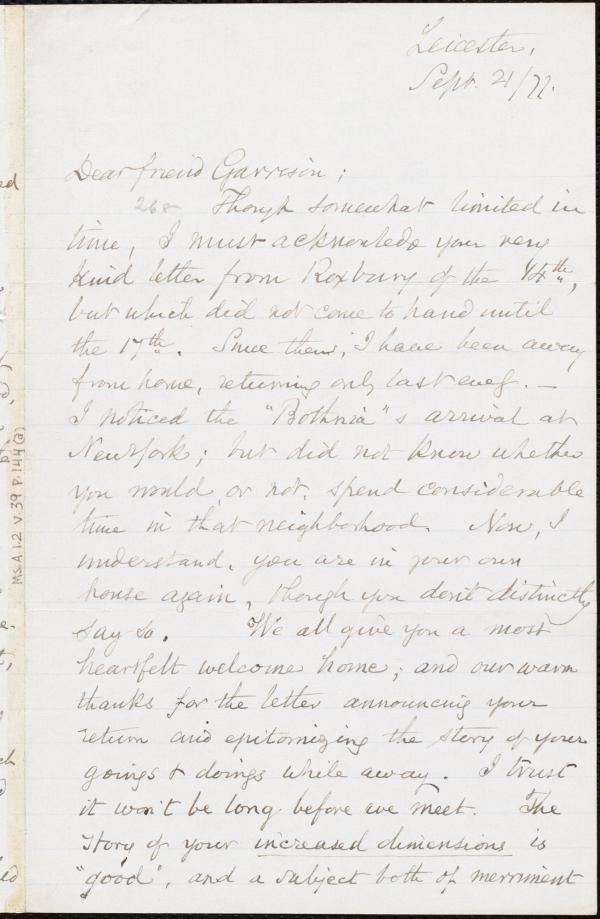 Leicester,
Sept. 21/77.
Dear friend Garrison;
268 Though somewhat limited in
time, I must acknowledge your very
kind letter from Roxbury of the 14th,
but which did not come to hand until
the 17th. Since then, I have been away
from home, returning only last eveg. —
I noticed the "Bothnia"s arrival at
New York; but did not know whether
you would, or not, spend considerable
time in that neighborhood. Now, I
understand, you are in your own
house again, though you don't distinctly
say so. We all give you a most
heartfelt welcome home; and our warm
thanks for the letter announcing your
return and epitomizing the story of your
goings & doings while away. I trust
it won't be long before we meet. The
story of your increased dimensions is
"good", and a subject both of merriment
MS.A.1.2 V.39 P.144(a)